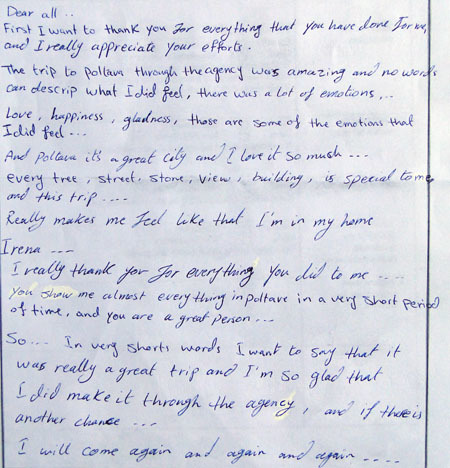 Dear all ..
First I want to thank you for everything that you have done for me,
and I really appreciate your efforts.
The trip to poltava through the agency was amazing and no words
can descrip what I did feel, there was a lot of emotions ...
Love, happiness, gladness, those are some of the emotions that
I did feel ...
And poltava it's a great city and I love it so mush ...
every tree, street, stone, view, building, is special to me,
and this trip ....
Really makes me feel like that I'm in my home
Irena ---
I really thank you for everything you did to me ....
you show me almost everything in poltave in a very short period
of time, and you are a great person ...
So ... In very shorts words I want to say that it
was really a great trip and I'm so glad that
I did make it through the agency, and if there is
another chance ...
I will come again and again and again ....